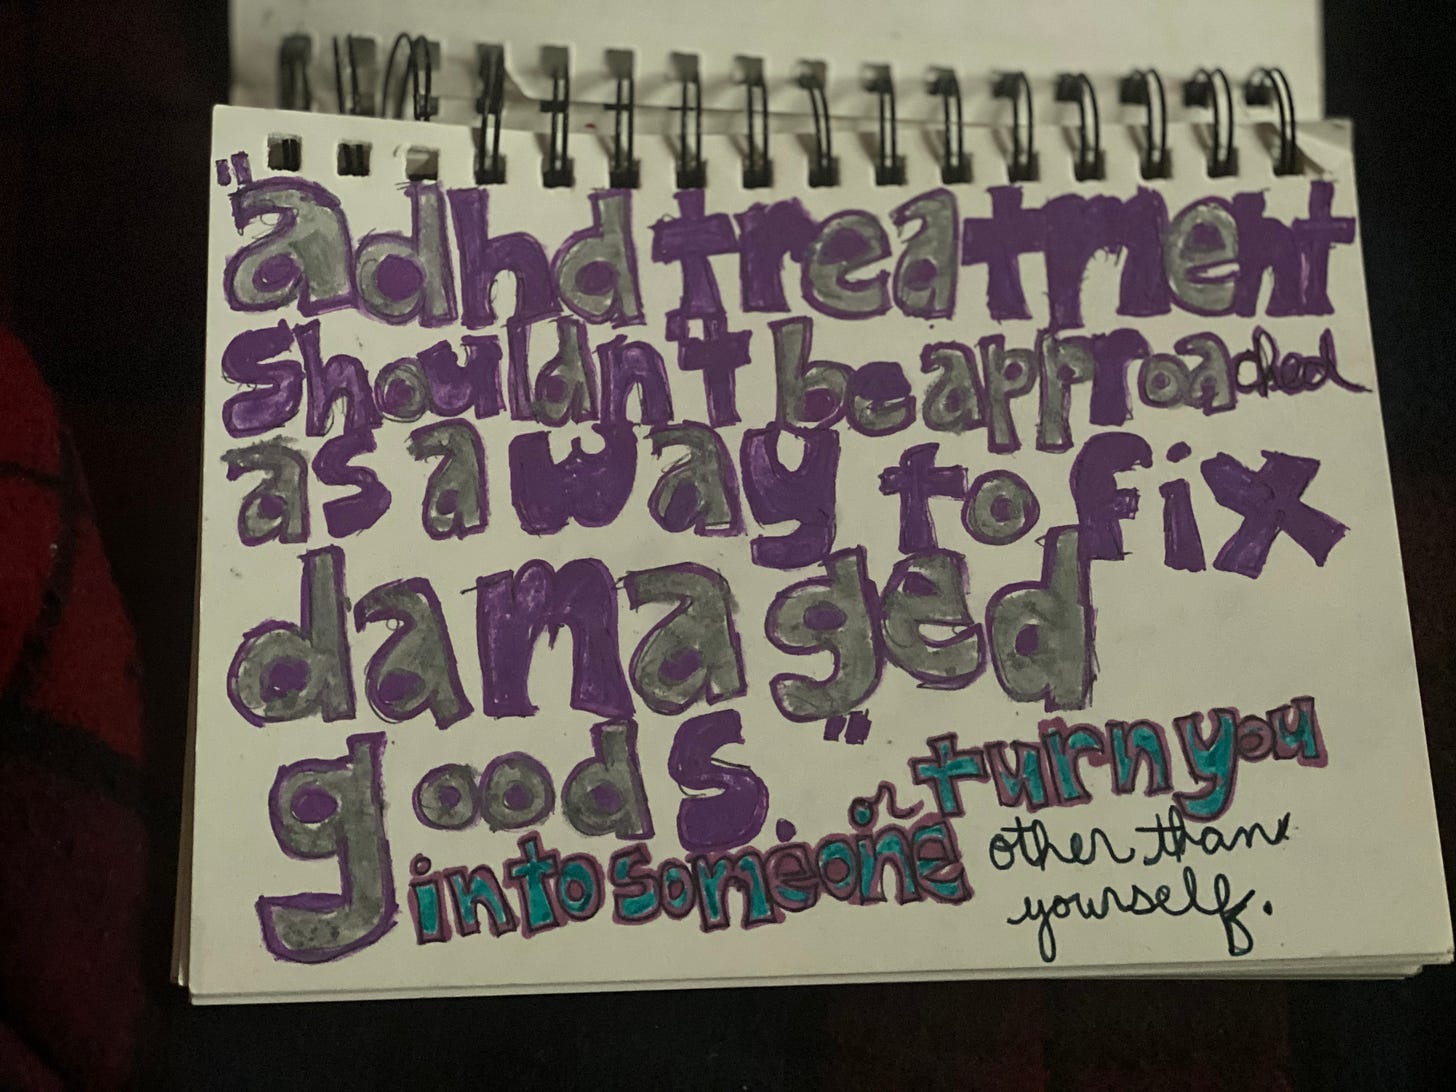 "adhd treatment
shouldn't be approached
as a way to fix
damaged
goods."
or turn you
into someone other than
yourself.